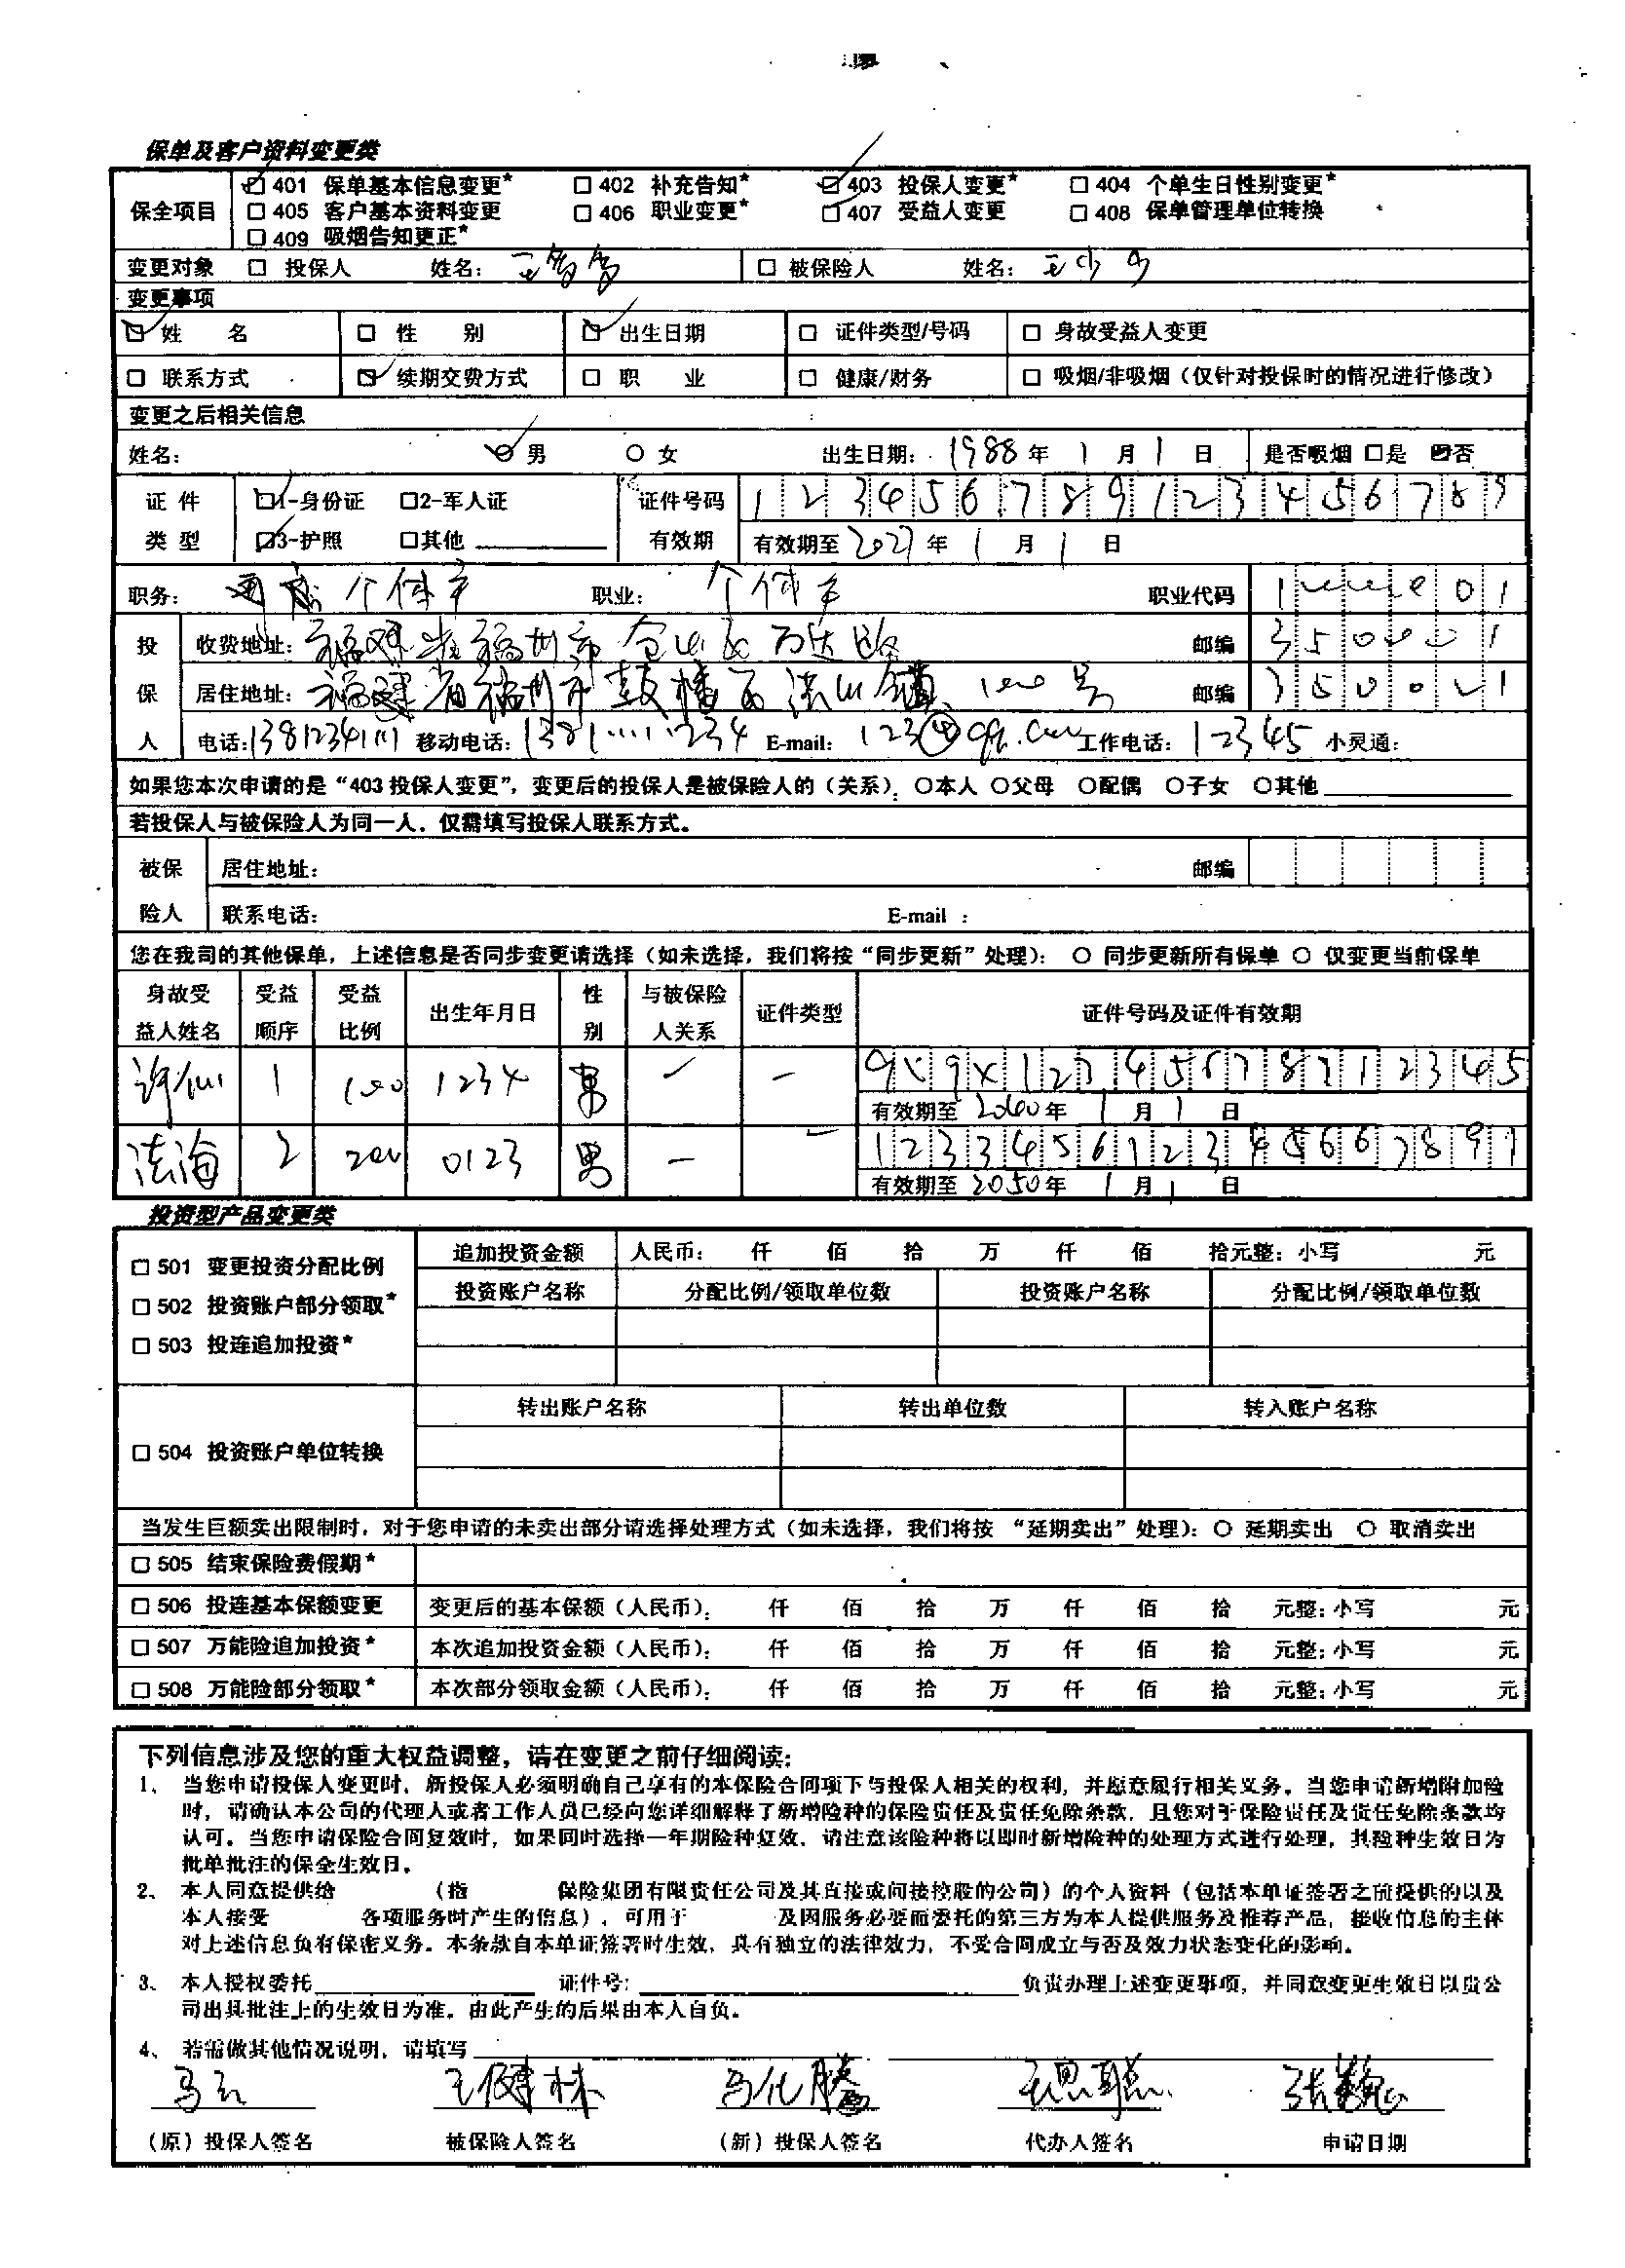 保单及客户资料变更类
保全项目 401 保单基本信息变更* 402 补充告知* 403 投保人变更* 404 个单生日性别变更*
405 客户基本资料变更 406 职业变更* 407 受益人变更 408 保单管理单位转换
409 吸烟告知更正*
变更对象 投保人 姓名: 被保险人 姓名:
变更事项
姓 名 性 别 出生日期 证件类型/号码 身故受益人变更
联系方式 续期交费方式 职 业 健康/财务 吸烟/非吸烟（仅针对投保时的情况进行修改）
变更之后相关信息
姓名: 男 女 出生日期: 1988 年 1 月 1 日 是否吸烟 是 否
证 件 1-身份证 2-军人证 证件号码 1 2 3 4 5 6 7 8 9 1 2 3 4 5 6 7 8 9
类 型 3-护照 其他 有效期 有效期至 2021 年 1 月 1 日
职务: 个体户 职业: 个体户 职业代码
投 收费地址: 福建省福州市仓山区万达 邮编 350001
保 居住地址: 福建省福州市鼓楼区洪山镇 100号 邮编 350001
人 电话: 13812341111 移动电话: E-mail: 工作电话: 12345 小灵通:
如果您本次申请的是“403 投保人变更”，变更后的投保人是被保险人的（关系）: 本人 父母 配偶 子女 其他
若投保人与被保险人为同一人，仅需填写投保人联系方式。
被保 居住地址: 邮编
险人 联系电话: E-mail :
您在我司的其他保单，上述信息是否同步变更请选择（如未选择，我们将按“同步更新”处理）: 同步更新所有保单 仅变更当前保单
身故受益人姓名 受益顺序 受益比例 出生年月日 性别 与被保险人关系 证件类型 证件号码及证件有效期
许仙 1 100 1234 男 — —
有效期至 2060年 1 月 1 日
法海 2 200 0123 男 — —
有效期至 2050年 1 月 1 日
投资型产品变更类
501 变更投资分配比例 追加投资金额 人民币: 仟 佰 拾 万 仟 佰 拾元整: 小写 元
502 投资账户部分领取* 投资账户名称 分配比例/领取单位数 投资账户名称 分配比例/领取单位数
503 投连追加投资*
504 投资账户单位转换 转出账户名称 转出单位数 转入账户名称
当发生巨额卖出限制时，对于您申请的未卖出部分请选择处理方式（如未选择，我们将按 “延期卖出”处理）: 延期卖出 取消卖出
505 结束保险费假期*
506 投连基本保额变更 变更后的基本保额（人民币）: 仟 佰 拾 万 仟 佰 拾 元整: 小写 元
507 万能险追加投资* 本次追加投资金额（人民币）: 仟 佰 拾 万 仟 佰 拾 元整: 小写 元
508 万能险部分领取* 本次部分领取金额（人民币）: 仟 佰 拾 万 仟 佰 拾 元整: 小写 元
下列信息涉及您的重大权益调整，请在变更之前仔细阅读:
1、当您申请投保人变更时，新投保人必须明确自己享有的本保险合同项下与投保人相关的权利，并愿意履行相关义务。当您申请新增附加险
时，请确认本公司的代理人或者工作人员已经向您详细解释了新增险种的保险责任及责任免除条款，且您对于保险责任及责任免除条款均
认可。当您申请保险合同复效时，如果同时选择一年期险种复效，请注意该险种将以即时新增险种的处理方式进行处理，其险种生效日为
批单批注的保全生效日。
2、本人同意提供给 （指 保险集团有限责任公司及其直接或间接控股的公司）的个人资料（包括本单证签署之前提供的以及
本人接受 各项服务时产生的信息），可用于 及因服务必要而委托的第三方为本人提供服务及推荐产品，接收信息的主体
对上述信息负有保密义务。本条款自本单证签署时生效，具有独立的法律效力，不受合同成立与否及效力状态变化的影响。
3、本人授权委托 证件号: 负责办理上述变更事项，并同意变更生效日以贵公
司出具批注上的生效日为准。由此产生的后果由本人自负。
4、若需做其他情况说明，请填写
马云 王健林 马化腾 王思聪 张巍
（原）投保人签名 被保险人签名 （新）投保人签名 代办人签名 申请日期